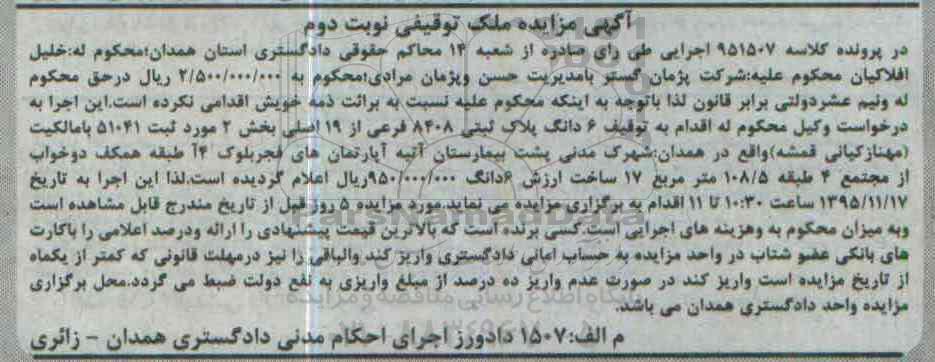 آگهی مزایده ملک توقیفی نوبت دوم
در پرونده کلاسه ۹۵۱۵۰۷ اجرایی طی رای صادره از شعبه ۱۴ محاکم حقوقی دادگستری استان همدان؛محکوم له:خلیل
افلاکیان محکوم علیه:شرکت پژمان گستر بامدیریت حسن وپژمان مرادی؛محکوم به ۲/۵۰۰/۰۰۰/۰۰۰ ریال درحق محکوم
له ونیم عشردولتی برابر قانون لذا باتوجه به اینکه محکوم علیه نسبت به برائت ذمه خویش اقدامی نکرده است.این اجرا به
درخواست وکیل محکوم له اقدام به توقیف ۶ دانگ پلاک ثبتی ۸۴۰۸ فرعی از ۱۹ اصلی بخش ۲ مورد ثبت ۵۱۰۴۱ بامالکیت
(مهنازکیانی قمشه)واقع در همدان:شهرک مدنی پشت بیمارستان آتیه آپارتمان های فجربلوک ۴آ طبقه همکف دوخواب
از مجتمع ۴ طبقه ۱۰۸/۵ متر مربع ۱۷ ساخت ارزش ۶دانگ ۹۵۰/۰۰۰/۰۰۰ریال اعلام گردیده است.لذا این اجرا به تاریخ
۱۳۹۵/۱۱/۱۷ ساعت ۱۰:۳۰ تا ۱۱ اقدام به برگزاری مزایده می نماید.مورد مزایده ۵ روز قبل از تاریخ مندرج قابل مشاهده است
وبه میزان محکوم به وهزینه های اجرایی است.کسی برنده است که بالاترین قیمت پیشنهادی را ارائه ودرصد اعلامی را باکارت
های بانکی عضو شتاب در واحد مزایده به حساب امانی دادگستری واریز کند والباقی را نیز درمهلت قانونی که کمتر از یکماه
از تاریخ مزایده است واریز کند در صورت عدم واریز ده درصد از مبلغ واریزی به نفع دولت ضبط می گردد.محل برگزاری
مزایده واحد دادگستری همدان می باشد.
م الف:۱۵۰۷ دادورز اجرای احکام مدنی دادگستری همدان - زائری
ParsNamadData
پایگاه اطلاع رسانی مناقصه و مزایده